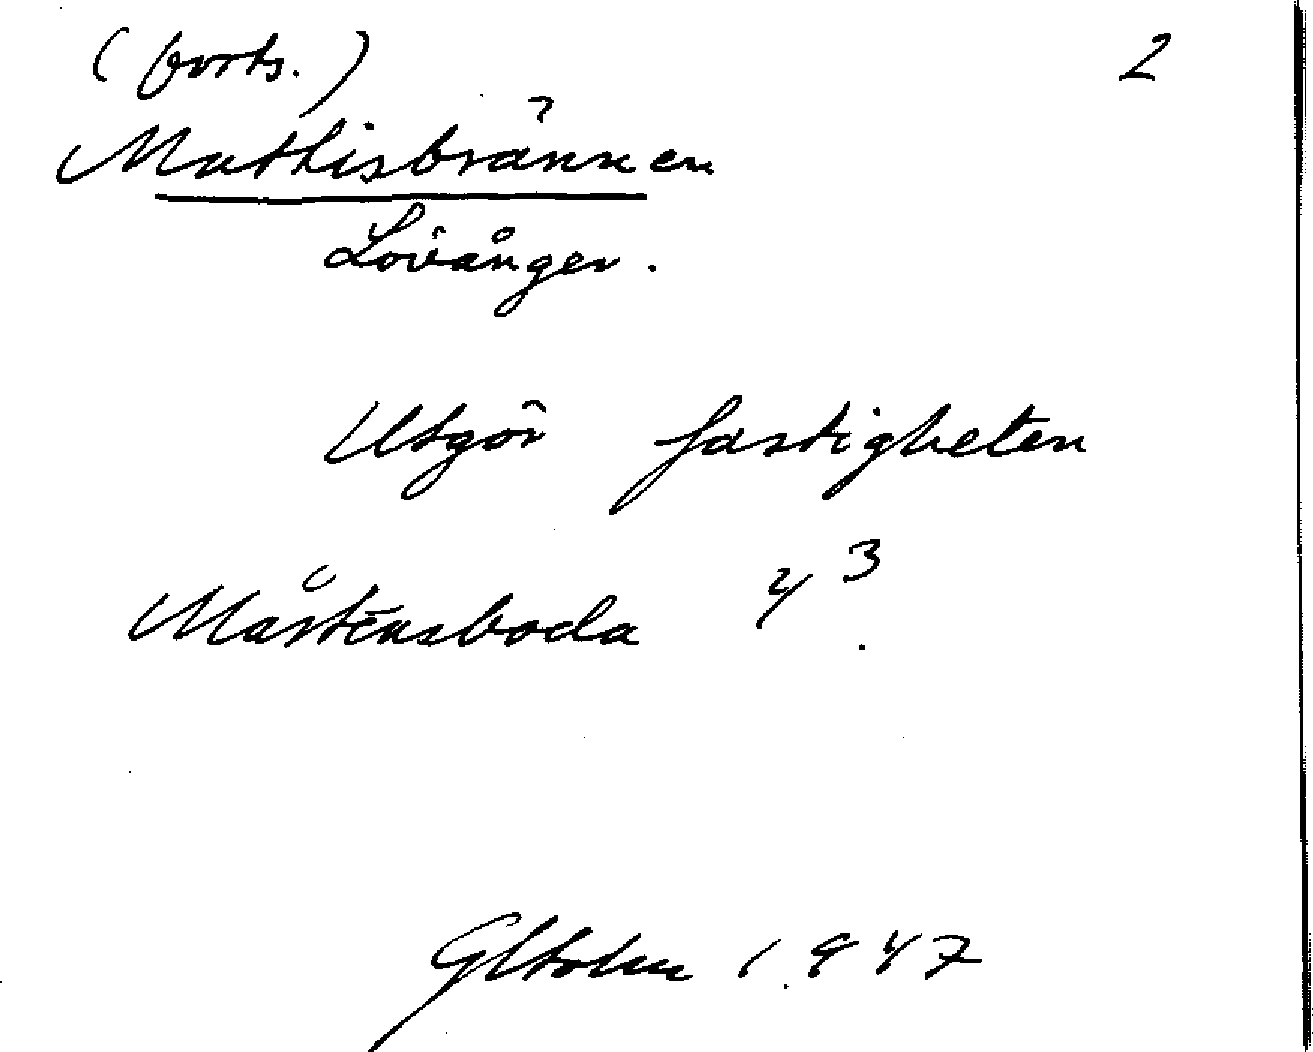 (forts.) 2
Mathisbrännen
Lövånger.
Utgör fastigheten
Mårtensboda 4³.
1947